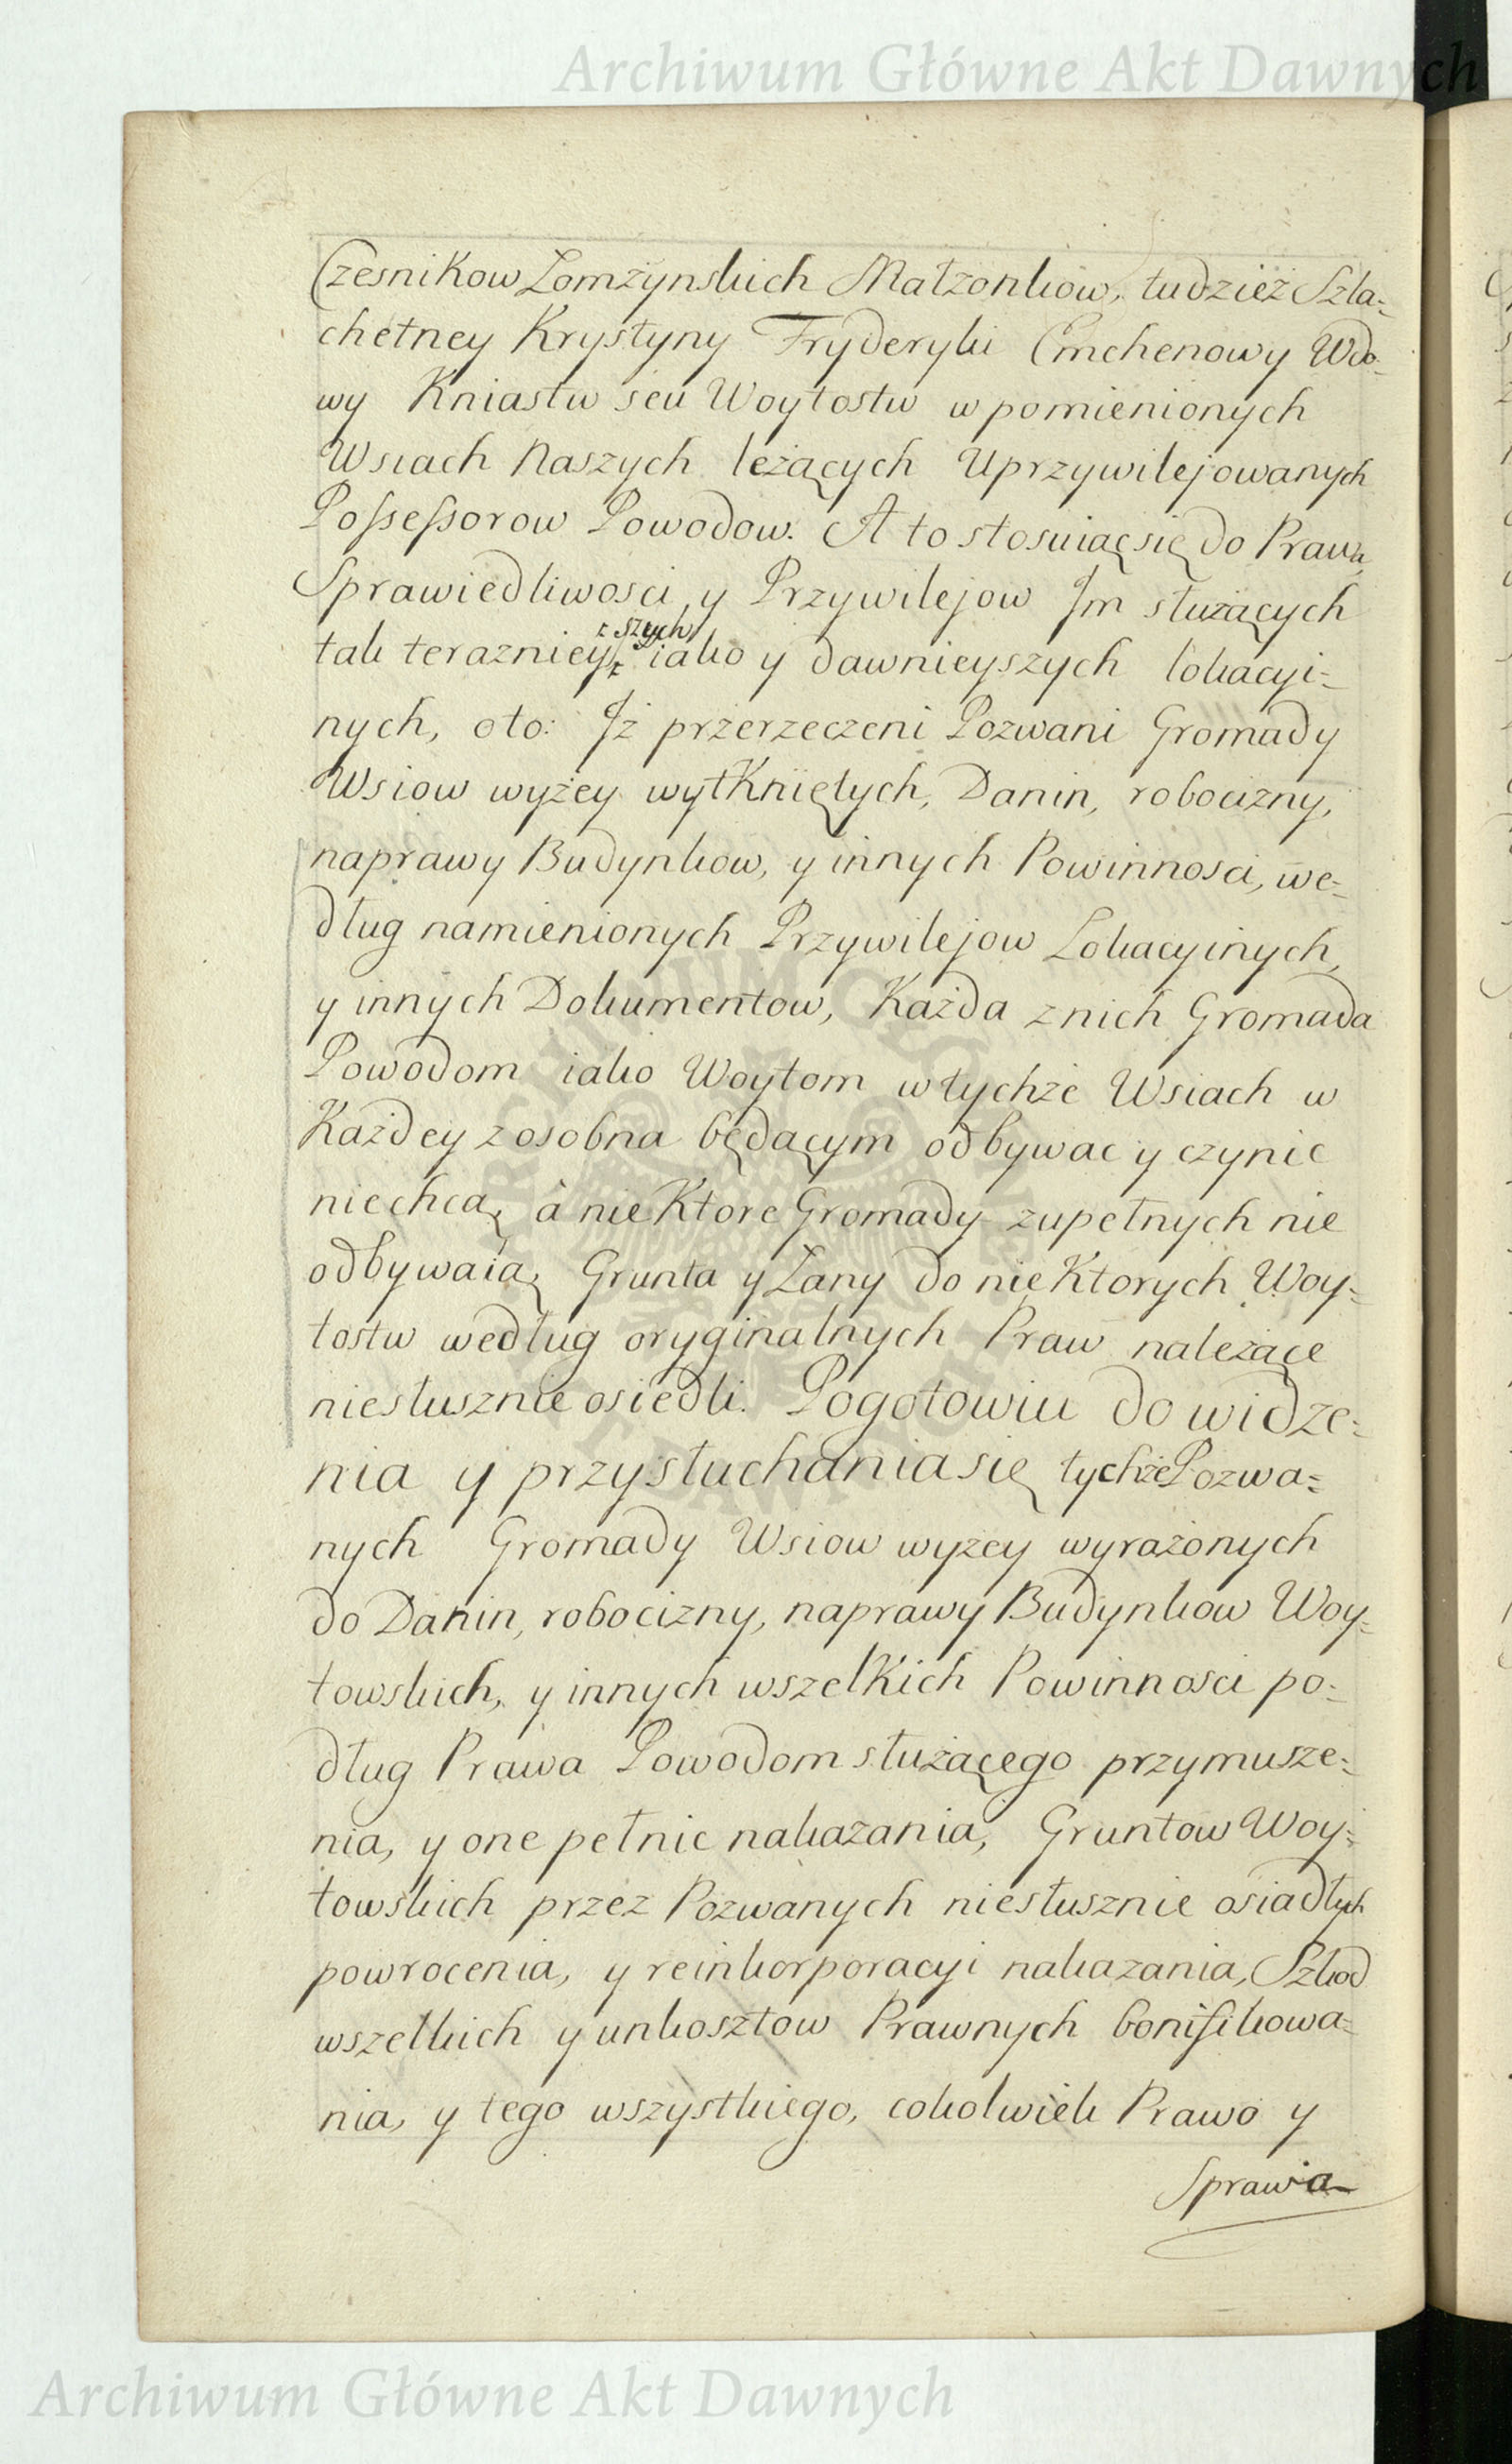 Archiwum Główne Akt Dawnych
Czesnikow Łomżynskich Małzonkow, tudzież Szla=
chetney Krystyny Fryderyki Emchenowy Wdo=
wy Kniastw seu Woytostw w pomienionych
Wsiach Naszych leżących Uprzywilejowanych
Possessorow Powodow. A to stosuiąc się do Prawa,
Sprawiedliwosci, y Przywilejow Jm służących
szych
tak terazniey iako y dawnieyszych lokacyi=
nych, oto: Jż przerzeczeni Pozwani Gromady
Wsiow wyżey wytkniętych, Danin, robocizny,
naprawy Budynkow, y innych Powinnosci, we=
dług namienionych Przywilejow Lokacyinych,
y innych Dokumentow, Każda z nich Gromada
Powodom iako Woytom w tychże Wsiach w
Każdey z osobna będącym odbywac y czynic
niechcą, à nieKtore Gromady zupełnych nie
odbywaią, Grunta y Łany do nieKtorych Woy=
tostw według oryginalnych Praw należące
niesłusznie osiedli. Pogotowiu do widze=
nia y przysłuchania się tychże Pozwa=
nych Gromady Wsiow wyżey wyrażonych
do Danin, robocizny, naprawy Budynkow Woy=
towskich, y innych wszelkich Powinnosci po=
dług Prawa Powodom służącego przymusze=
nia, y one pełnic nakazania, Gruntow Woy=
towskich przez Pozwanych niesłusznie osiadłych
powrocenia, y reinkorporacyi nakazania, Szkod
wszelkich y unkosztow Prawnych bonifikowa=
nia, y tego wszystkiego, cokolwiek Prawo y
Sprawia
Archiwum Główne Akt Dawnych